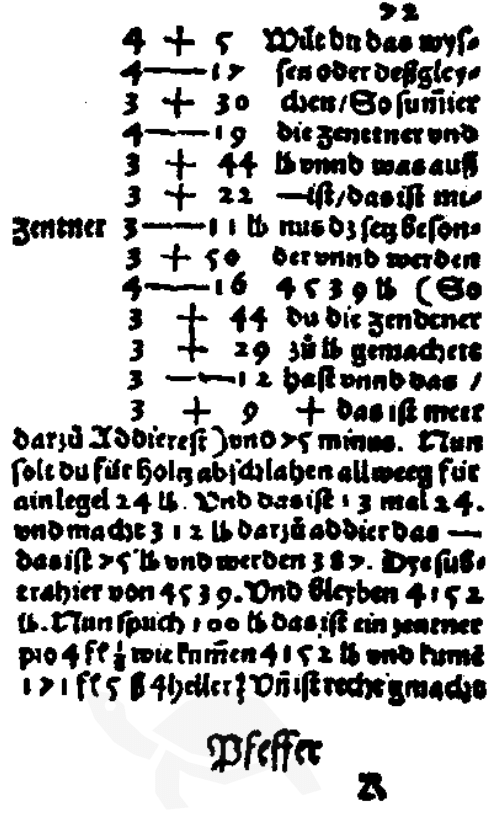 72
4 + 5 Wilt du das wyſ⸗
4 — 17 ſen oder deßgley⸗
3 + 30 chen / So ſumier
4 — 19 die zentner vnd
3 + 44 lb vnnd was auß
3 + 22 — iſt / das iſt mi⸗
Zentner 3 — 11 lb nus dz ſetz beſon⸗
3 + 50 der vnnd werden
4 — 16 4539 lb (So
3 + 44 du die zendener
3 + 29 zů lb gemachett
3 — 12 haſt vnnd das /
3 + 9 + das iſt meer
darzů Addiereſt) vnd 75 minus. Nun
ſolt du für holtz abſchlahen allweeg für
ain legel 24 lb. Vnd das iſt 13 mal 24.
vnd macht 312 lb darzů addier das —
das iſt 75 lb vnd werden 387. Dye ſub⸗
trahier von 4539. Vnd bleyben 4152
lb. Nun ſprich 100 lb das iſt ein zentner
pro 4 fl ⅛ wie kumen 4152 lb vnd kumē
171 fl 5 ß 4 heller ⅗ Vn̄ iſt recht gmacht
Pfeffer